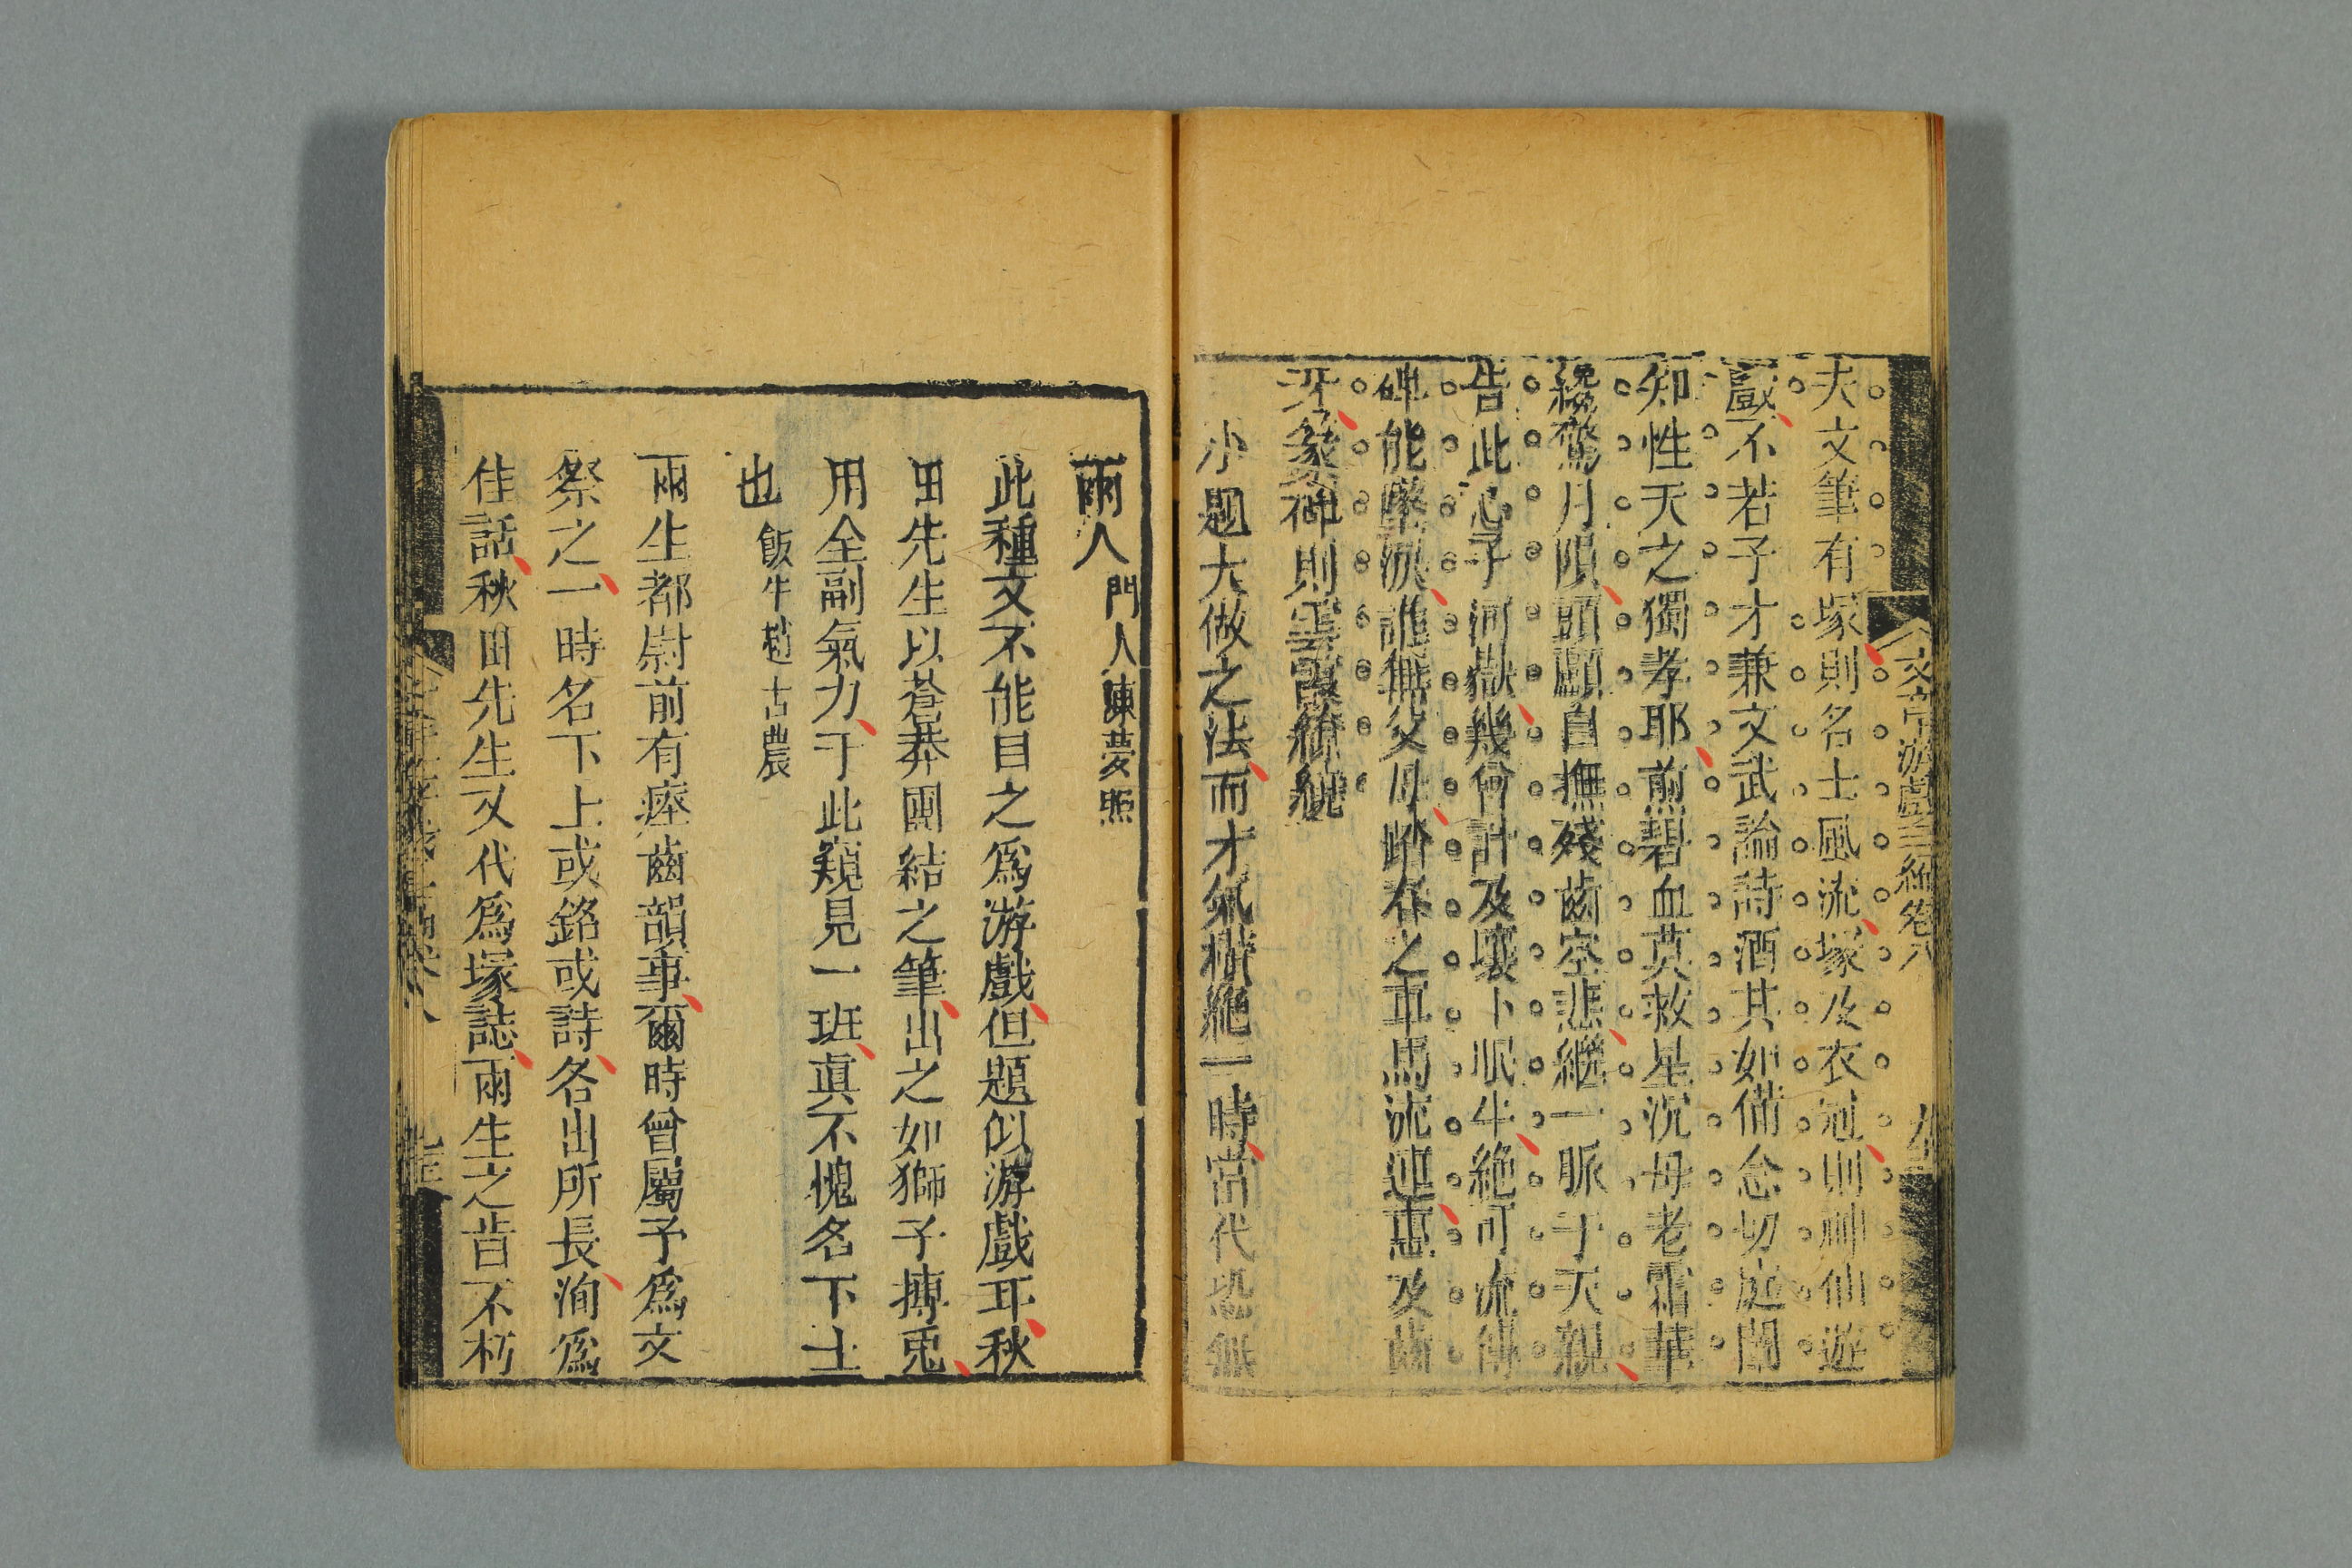 文章游戲三編卷八
夫文筆有塚則名士風流塚及衣冠則神仙遊
戲不若子才兼文武論詩酒其如備念切庭闈
知性天之獨孝耶煎碧血莫救星沉母老霜華
纔驚月隕頭顱自撫殘齒空悲繼一脈于天親
告此心于河嶽幾曾計及壤卜眠牛絶可流傳
碑能墜淚誰無父母踏春之車馬流連惠及齒
牙篆碑則雲霞繚繞
小題大做之法而才氣橫絶一時當代恐無
兩人門人陳夢熙
此種文不能目之爲游戲但題似游戲耳秋
田先生以蒼莽團結之筆出之如獅子搏兎
用全副氣力于此窺見一班眞不愧名下士
也 飯牛趙古農
雨生都尉前有瘞齒韻事爾時曾屬予爲文
祭之一時名下上或銘或詩各出所長洵爲
佳話秋田先生又代爲塚誌雨生之齒不朽